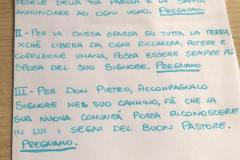 FEDELE DELLA TUA PAROLA E LA SAPPIA
ANNUNCIARE AD OGNI UOMO. PREGHIAMO
II. - PER LA CHIESA SPARSA SU TUTTA LA TERRA,
XCHÉ LIBERA DA OGNI RICCHEZZA, POTERE E
CORRUZIONE UMANA, POSSA ESSERE SEMPRE PIÙ
SPOSA DEL SUO SIGNORE. PREGHIAMO
III - PER DON PIETRO, ACCOMPAGNALO
SIGNORE NEL SUO CAMMINO, FÀ CHE LA
SUA NUOVA COMUNITÀ POSSA RICONOSCERE
IN LUI I SEGNI DEL BUON PASTORE.
PREGHIAMO.